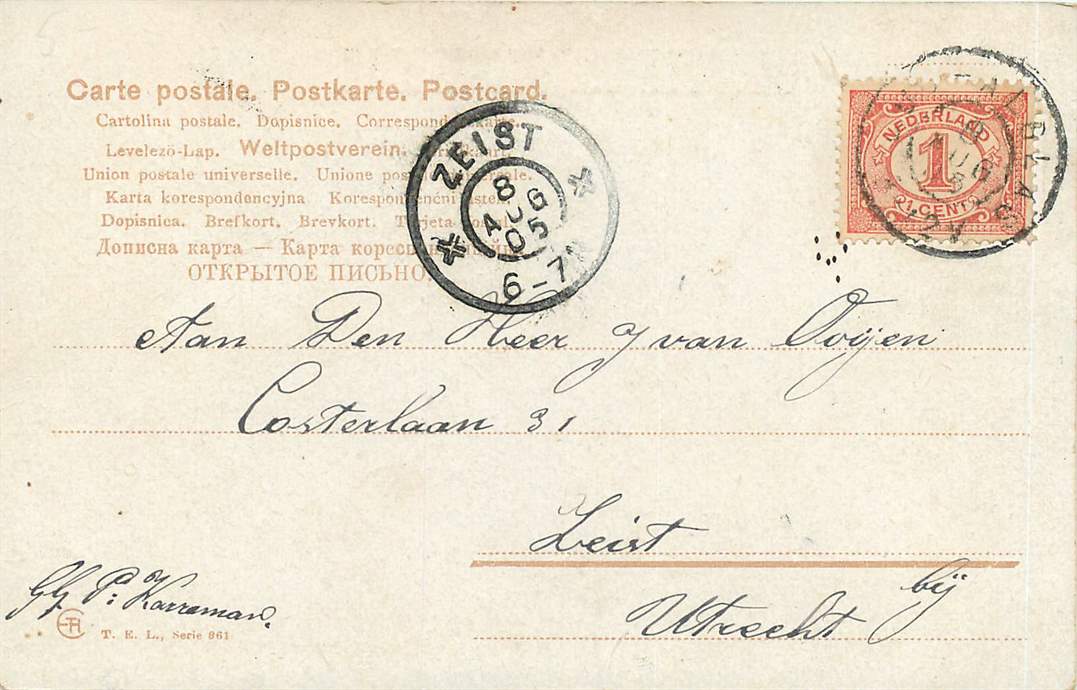 Carte postale. Postkarte. Postcard.
Cartolina postale. Dopisnice.
Levelező-Lap. Weltpostverein.
Union postale universelle. Unione
Karta korespondencyjna.
Dopisnica. Brefkort. Brevkort.
Дописна карта — Карта
ОТКРЫТОЕ ПИСЬМО
ZEIST
8
AUG
05
6-7
NEDERLAND
1
CENT
AUG
Aan Den Heer J van Ooijen
Costerlaan 31
Zeist
bij
Utrecht
P: Karreman.
T. E. L., Serie 961